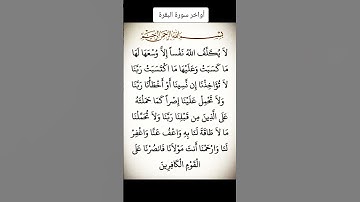 أواخر سورة البقرة
بسم الله الرحمن الرحيم
لاَ يُكَلِّفُ اللّهُ نَفْساً إِلاَّ وُسْعَهَا لَهَا
مَا كَسَبَتْ وَعَلَيْهَا مَا اكْتَسَبَتْ رَبَّنَا
لاَ تُؤَاخِذْنَا إِن نَّسِينَا أَوْ أَخْطَأْنَا رَبَّنَا
وَلاَ تَحْمِلْ عَلَيْنَا إِصْراً كَمَا حَمَلْتَهُ
عَلَى الَّذِينَ مِن قَبْلِنَا رَبَّنَا وَلاَ تُحَمِّلْنَا
مَا لاَ طَاقَةَ لَنَا بِهِ وَاعْفُ عَنَّا وَاغْفِرْ
لَنَا وَارْحَمْنَا أَنتَ مَوْلاَنَا فَانصُرْنَا عَلَى
الْقَوْمِ الْكَافِرِينَ